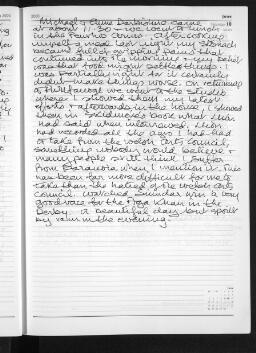 2000
June
10
Michael & Anne Dartstone came
at about 11.30 - we took a lunch
in the Patrick Crome. After cooking
myself a meal last night my stomach
became full of awful pains that
continued into the morning & my belief
was that food might settle them. I
was partially right for it certainly
didn't make things worse. On returning
we went to the studio
where I showed them my latest
efforts & afterwards in the house, I showed
them in Schidunges book what then
had said when interviewed them
had recorded all the agro I had had
to take from the Welsh Arts Council,
something nobody would believe &
many people still think I suffer
from Paranoia when I mention it. This
has been far more difficult for me to
take than the hatred of the Welsh Arts
Council. Watched Sinndar win a very
good race for the Aga Khan in the
Derby. A beautiful day but spoilt
by rain in the evening.